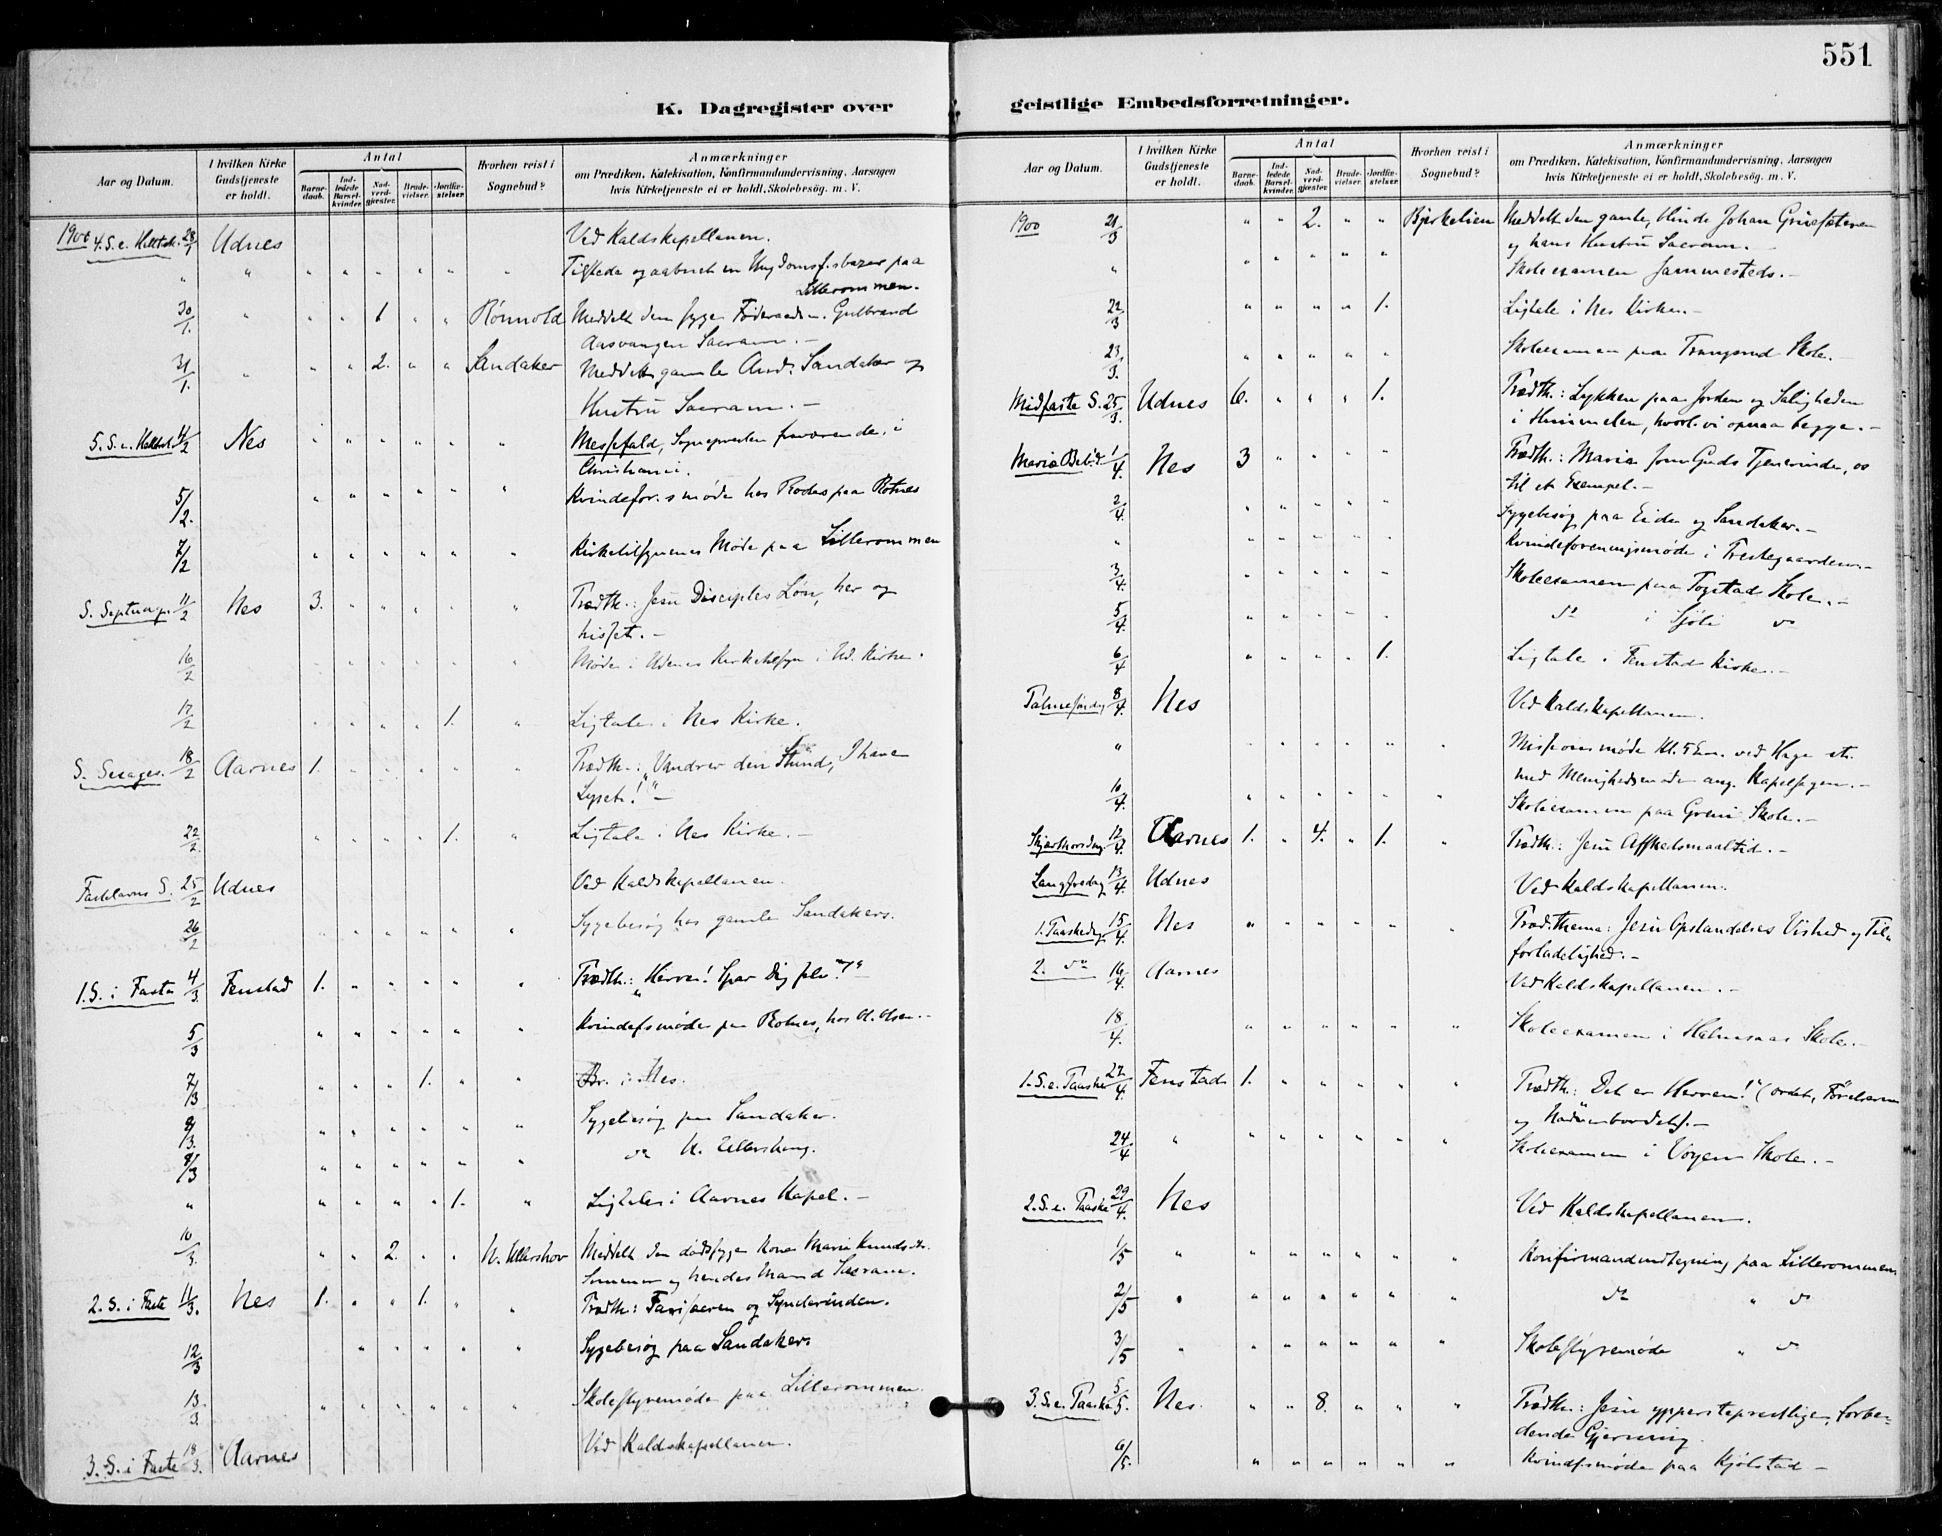 551
K. Dagregister over
geistlige Embedsforretninger.
Aar og Datum.
I hvilken Kirke Gudstjeneste er holdt.
Antal
Barnedaab.
Indledede Barselkvinder.
Nadverdgjester.
Brudevielser.
Jordfæstelser.
Hvorhen reist i Sognebud?
Anmærkninger
om Prædiken, Katekisation, Konfirmandundervisning, Aarsagen
hvis Kirketjeneste ei er holdt, Skolebesøg. m. V.
1900 4. S. e. 28/1 Udnes Ved Kaldskapellanen.
" " " " " " " " Tilstede og aabnet en Ungdomsf.sbazar paa
Lillerommen.
30/1 " " " 1 " " Rønnold Meddelt den syge Føderaadsm. Gulbrand
Aasvangen Sacram. –
31/1 " " " 2. " " Sandaker Meddelt gamle And. Sandaker og
Hustru Sacram. –
5. S. e. 4/2 Nes " " " " " " Messefald, Sognepresten fraværende i
Christiania.
5/2 " " " " " " Kvindefor.smøde hos Rodes paa Rotnes
7/2 " " " " " " Kirketilsynenes Møde paa Lillerommen
S. Septuag. 11/2 Nes 3. " " " " " Prædth.: Jesu Disciples Løn, her og
hisset. –
16/2 " " " " " " Møde i Udenes Kirketilsyn i Ud. Kirke.
17/2 " " " " 1. " Ligtale i Nes Kirke.
S. Sexages. 18/2 Aarnes 1. " " " " " Prædth.: "Vandrer den Stund, I have
Lyset!" –
22/2. " " " " 1. " Ligtale i Nes Kirke. –
Fastelavns S. 25/2 Udnes Ved Kaldskapellanen.
26/2 " " " " " " Sygebesøg hos gamle Sandakers.
1. S. i Faste 4/3 Fenstad 1. " " " " " Prædth.: "Herre! Spar Dig selv"!"
5/3 " " " " " " Kvindefsmøde paa Rotnes, hos A. Olsen. –
7/3 " " " 1. " " Br. i Nes.
8/3. " " " " " " Sygebesøg paa Sandaker.
9/3 " " " " " " do N. Ullershoug.
" " " " " 1. " Ligtale i Aarnes Kapel. –
10/3. " " 2. " " N. Ullershov Meddelt den dødssyge Kone Marie Knudsdtr.
og hendes Mand Sacram.
2. S. i Faste 11/3. Nes 1. " " 1. " " Prædth.: Farisæeren og Synderinden.
12/3 " " " " " Sygebesøg paa Sandaker.
13/3 " " " " " " Skolestyremøde paa Lillerommen.
3. S. i Faste 18/3. Aarnes Ved Kaldskapellanen.
Aar og Datum.
I hvilken Kirke Gudstjeneste er holdt.
Antal
Barnedaab.
Indledede Barselkvinder.
Nadverdgjester.
Brudevielser.
Jordfæstelser.
Hvorhen reist i Sognebud?
Anmærkninger
om Prædiken, Katekisation, Konfirmandundervisning, Aarsagen
hvis Kirketjeneste ei er holdt, Skolebesøg. m. V.
1900 21/3 " " 2. " " Bjerkelien Meddelt den gamle, blinde Johan
og hans Hustru Sacram. –
" " " " " " Skoleexamen sammesteds. –
22/3 " " " " 1. Ligtale i Nes Kirke. –
23/3. " " " " " Skoleexamen paa Skole. –
Midfaste S. 25/3. Udnes 6. " " " 1. Prædth.: Lykken paa Jorden og Saligheden
i Himmelen, hvorl. vi opnaa begge. –
Mariæ Beb.d. 1/4. Nes 3 " " " " Prædth.: Maria som Guds Tjenerinde, os
til et Exempel. –
2/4. " " " " " Sygebesøg paa Eide og Sandaker. –
" " " " " " Kvindeforeningsmøde i Prestegaarden. –
3/4. " " " " " Skoleexamen paa Togstad Skole. –
5/4. " " " " " do i Sjøli do
6/4 " " " " 1. Ligtale i Fenstad Kirke. –
Palmesøndag 8/4. Nes Ved Kaldskapellanen.
" " " " " " " Missionsmøde Kl. 5 Em. ved Haga st.
med Menighedsmøde ang. Kapelsagen. –
10/4. " " " " " " Skoleexamen paa Greni Skole. –
Skjærthorsdag 12/4. Aarnes 1. " 4. " 1. " Prædth.: Jesu Afskedsmaaltid. –
Langfredag 13/4. Udnes Ved Kaldskapellanen.
1. Paaskedag 15/4. Nes " " " " " " Præd.thema: Jesu Opstandelses Vished og Til-
forladelighed. –
2. do 16/4. Aarnes Ved Kaldskapellanen. –
18/4. " " " " " " Skoleexamen i Skole. –
1. S. e. Paaske 22/4. Fenstad 1. " " " " " Prædth.: Det er Herren!" (Ordet, Førelserne
og Nadverbordet). –
24/4. " " " " " " " Skoleexamen i Vogen Skole. –
2. S. e. Paaske 29/4. Nes Ved Kaldskapellanen.
1/5 " " " " " " " Konfirmandindtegning paa Lillerommen.
2/5 " " " " " " " do " do
3/5 " " " " " " " Skolestyremøde " do
3. S. e. Paaske 5/5. Nes. " " 8. " " " Prædth.: Jesu ypperstepræstlige, forbe-
dende Gjerning.
6/5. " " " " " " Kvindfsmøde paa Kjølstad –